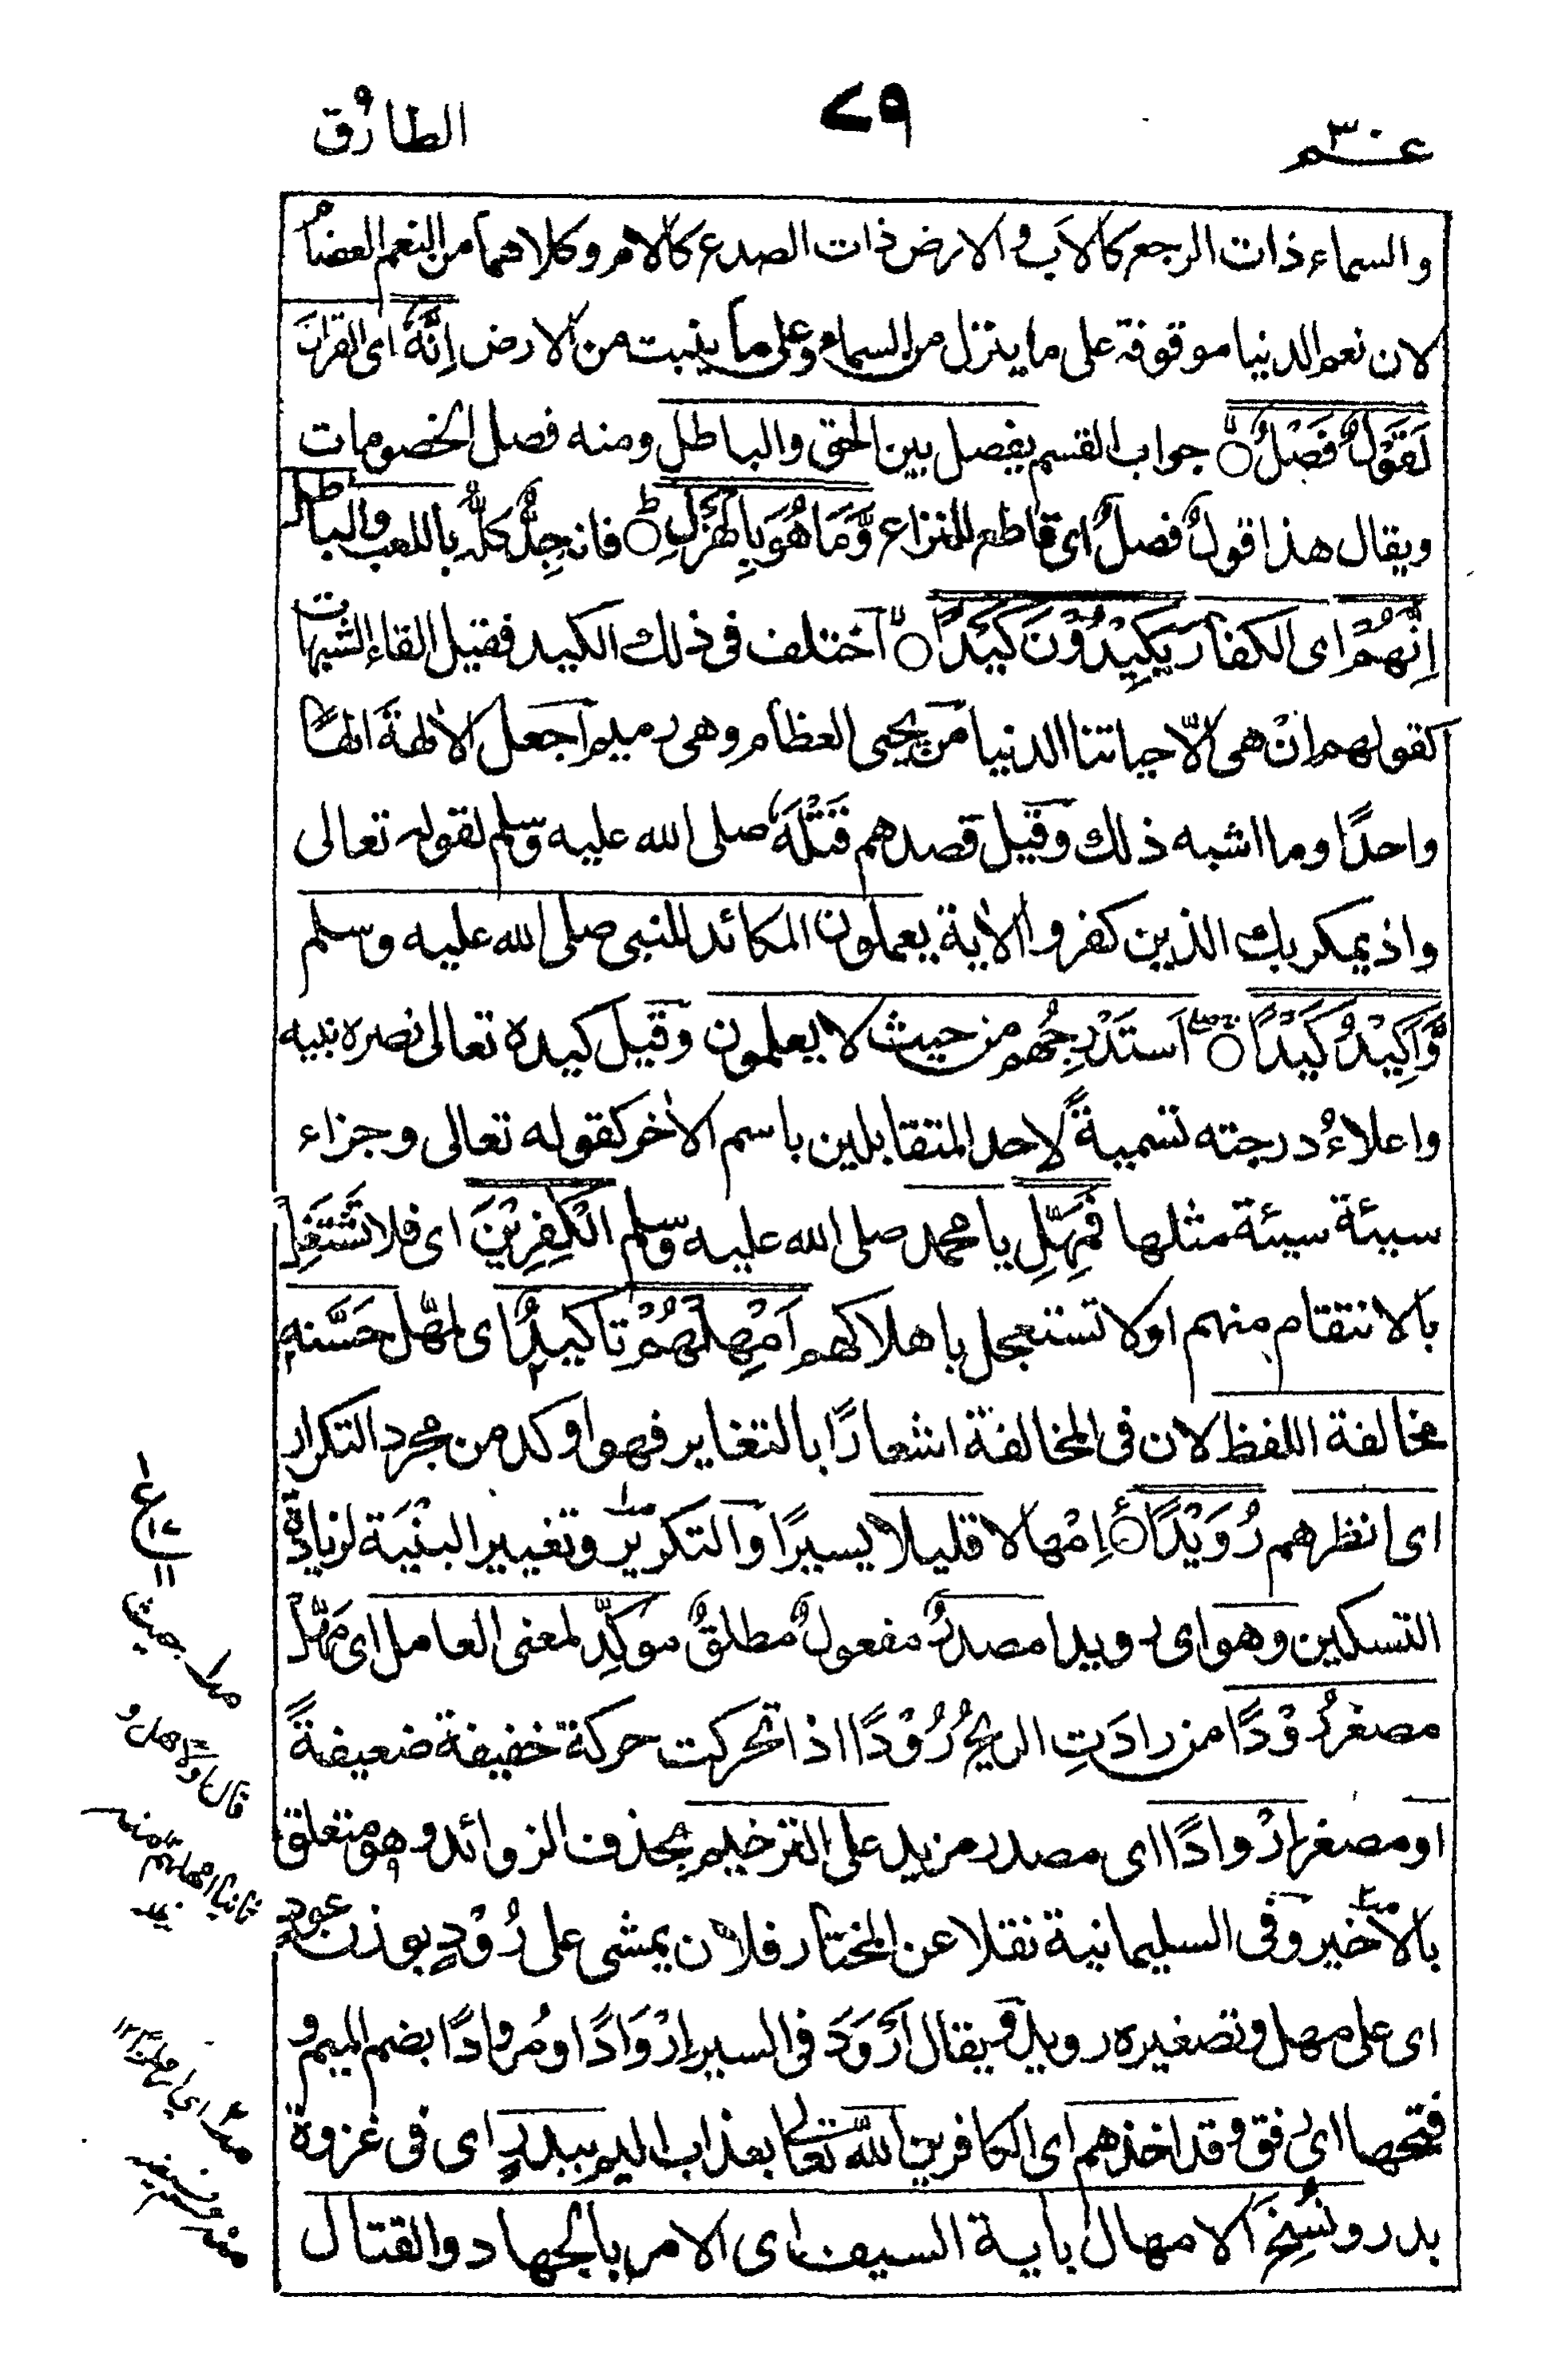 عم ٣٠
٧٩
الطارق
والسماء ذات الرجع كالاب والارض ذات الصدع كالام وكلاهما من النعم العضام
لان نعم الدنيا موقوفة على ما ينزل من السماء وعلى ما ينبت من الارض اِنَّهٗ اى القرآن
لَقَوْلٌ فَصْلٌ جواب القسم يفصل بين الحق والباطل ومنه فصل الخصومات
ويقال هذا قولٌ فصلٌ اى قاطع للنزاع وَّمَا هُوَ بِالْهَزْلِ فانه جِدٌّ كلُّه باللعب والباطل
اِنَّهُمْ اى الكفار يَكِيْدُوْنَ كَيْدًا اختلف فى ذلك الكيد فقيل القاء الشبهات
كقولهم ان هى الّا حياتنا الدنيا من يحيى العظام وهى رميم اجعل الاٰلهة الٰهًا
واحدًا وما اشبه ذلك وقيل قصدهم قَتْلَهٗ صلى الله عليه وسلم لقوله تعالى
واذ يمكر بك الذين كفروا الاٰية يعملون المكائد للنبى صلى الله عليه وسلم
وَّاَكِيْدُ كَيْدًا استَدْرِجُهم من حيث لا يعلمون وقيل كيده تعالى نصره نبيه
واعلاءُ درجته تسميةً لاحد المتقابلين باسم الاٰخر كقوله تعالى وجزاء
سيئة سيئة مثلها فَمَهِّلِ يا محمد صلى الله عليه وسلم الْكٰفِرِيْنَ اى فلا تَشْتَغِل
بالانتقام منهم اولا تستعجل باهلاكهم اَمْهِلْهُمْ تاكيدٌ اى لمهّل حَسَّنه
مخالفة اللفظ لان فى المخالفة اشعارًا بالتغاير فهو اوكد من مجرد التكرار
اى انظرهم رُوَيْدًا اِمْهالا قليلا يسيرًا والتكرير وتغيير البِنْيَة لزيادة
التسكين وهو اى رويدا مصدرٌ مفعولٌ مطلقٌ موكِّد لمعنى العامل اى مَهِّل
مصغرُ رُوْدًا من رادَتِ الريحُ رُوْدًا اذا تحركت حركة خفيفة ضعيفةً
او مصغر اِرْوادًا اى مصدر مزيد على الترخيم بحذف الزوائد وهو متعلق
بالاخير وفى السليمانية نقلا عن المختار فلان يمشى على رُوْدٍ بوزن عودٍ
اى على مهل وتصغيره رويد ويقال اَرْوَدَ فى السير اِرْوَادًا ومُروادًا بضم الميم و
فتحها اى رفق وقد اخذهم اى الكافرين الله تعالى بعذاب اليم ببدرٍ اى فى غزوة
بدر ونُسِخَ الامهال باٰية السيف اى الامر بالجهاد والقتال